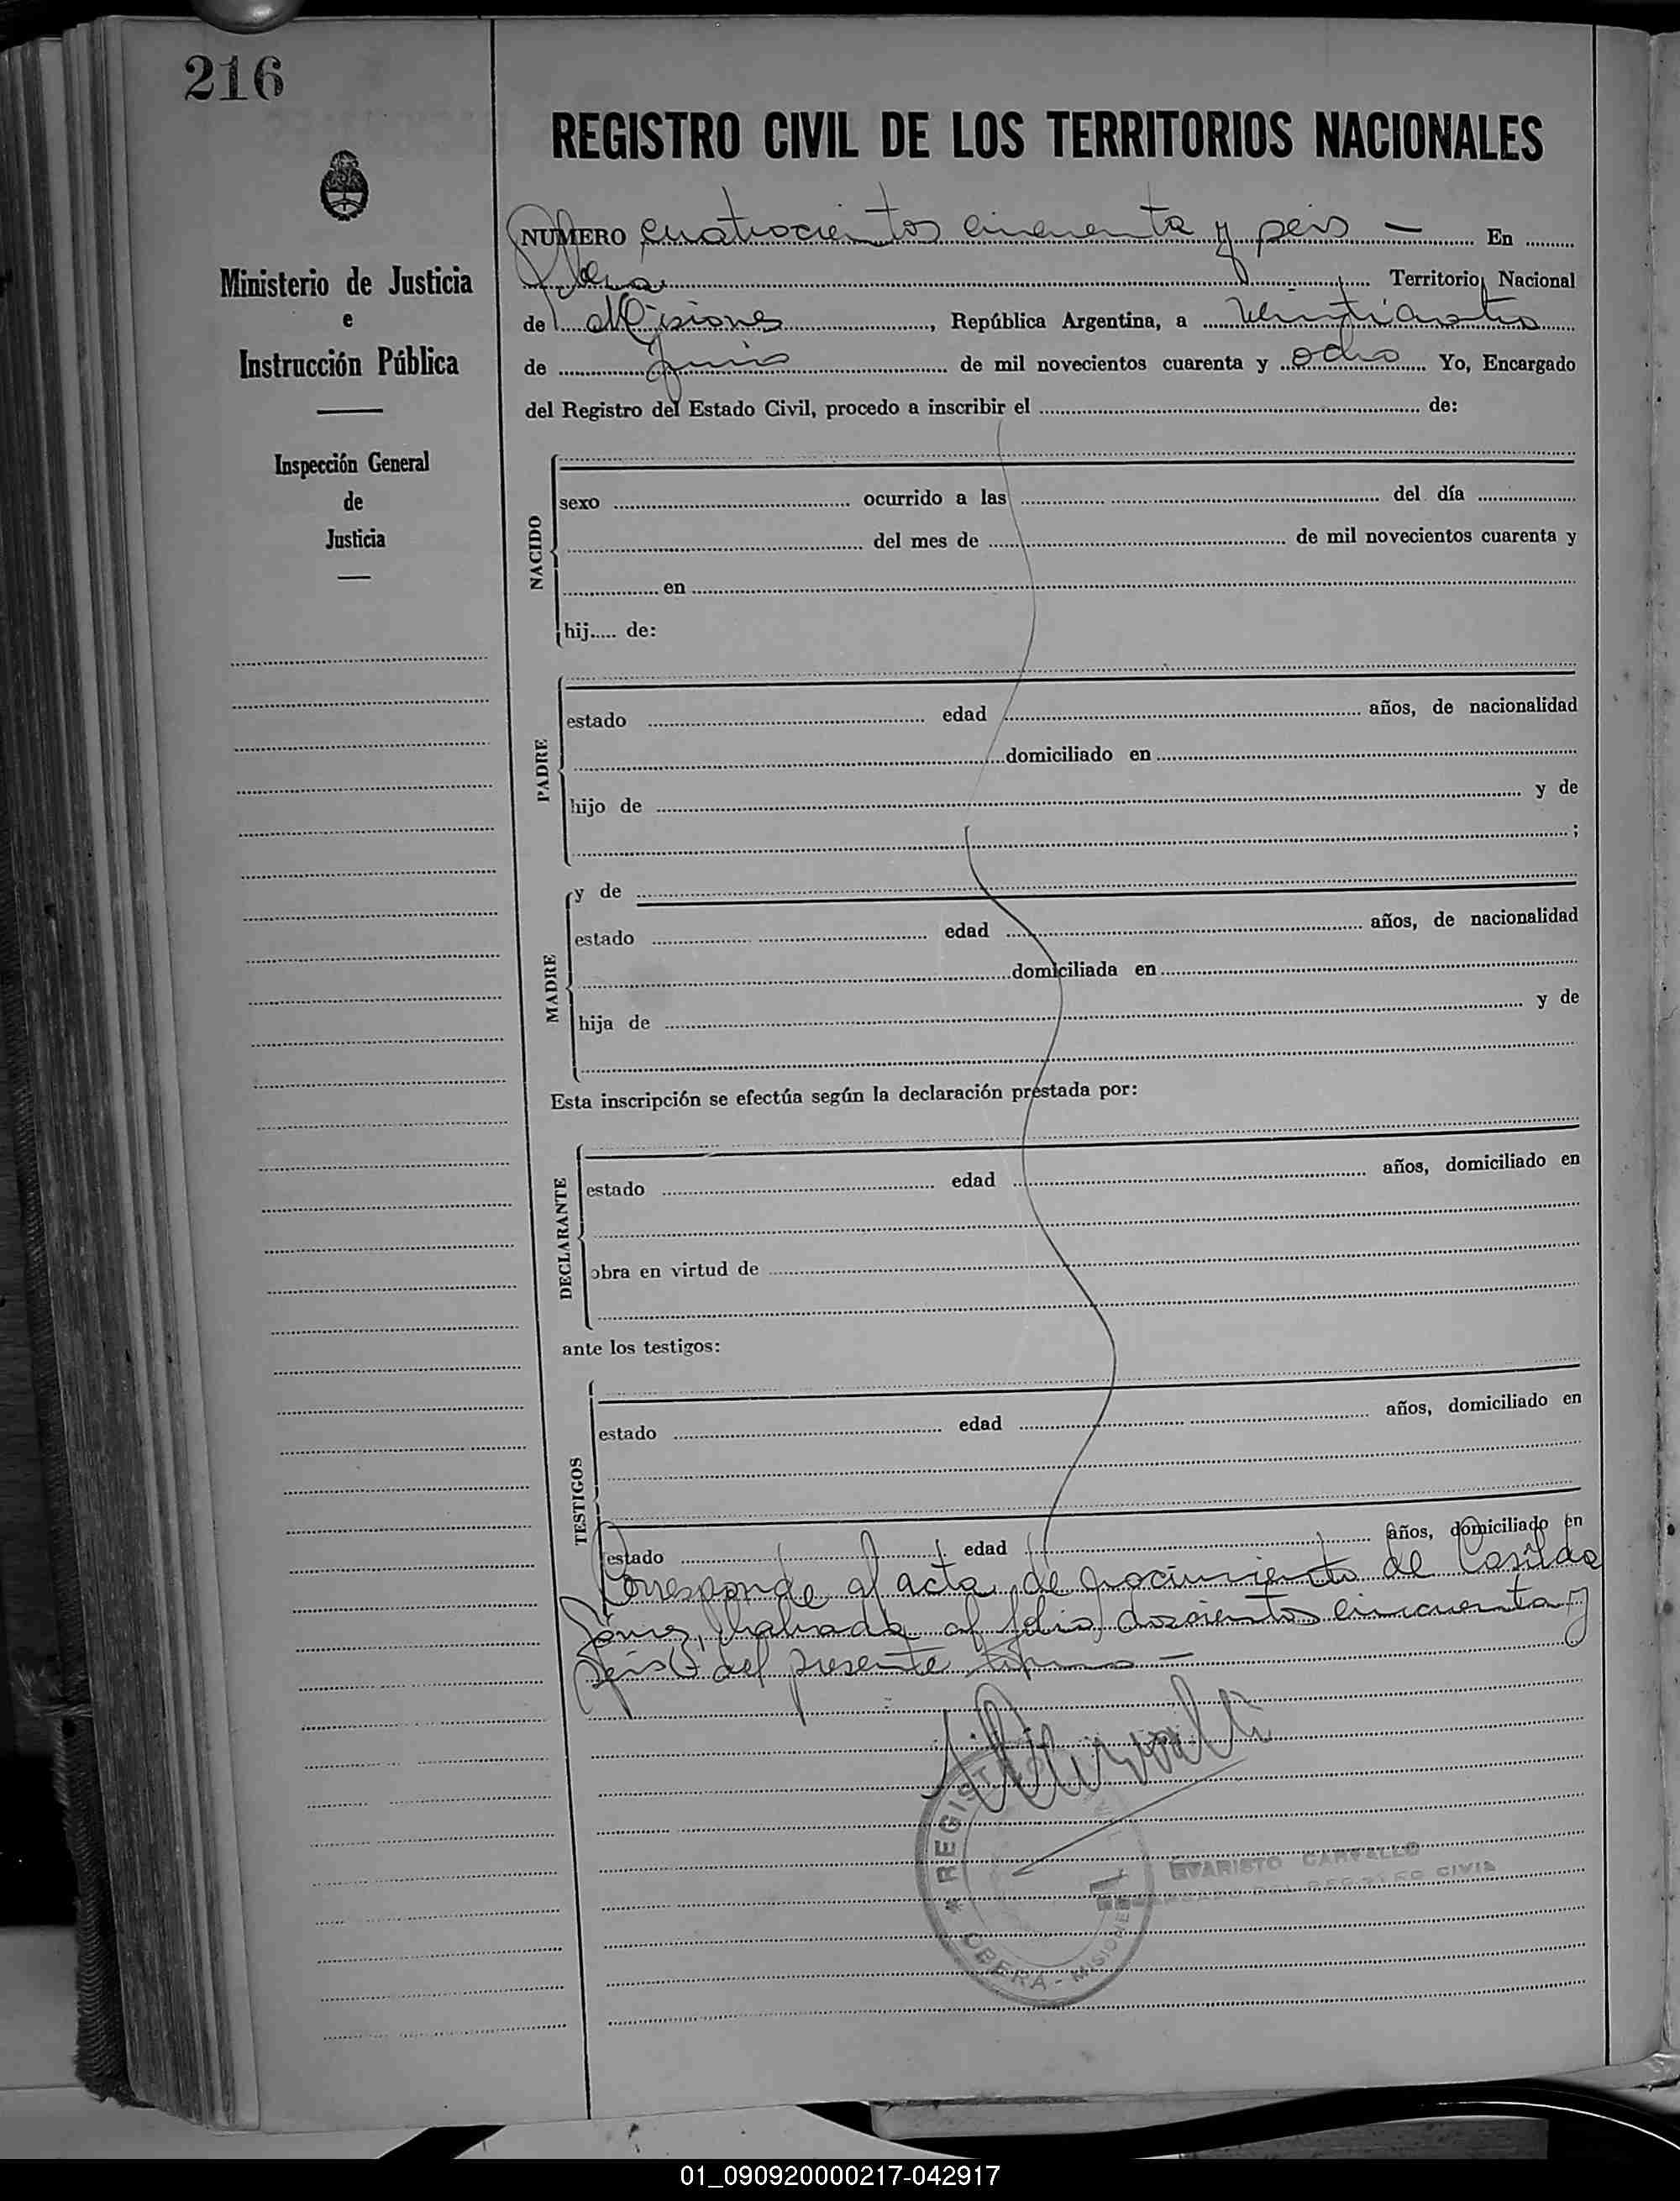 216
REGISTRO CIVIL DE LOS TERRITORIOS NACIONALES
NUMERO cuatrocientos cincuenta y seis — En
Oberá Territorio Nacional
de Misiones, República Argentina, a veinticuatro
de junio de mil novecientos cuarenta y ocho Yo, Encargado
del Registro del Estado Civil, procedo a inscribir el de:
Ministerio de Justicia
e
Instrucción Pública
Inspección General
de
Justicia
NACIDO
sexo ocurrido a las del día
del mes de de mil novecientos cuarenta y
en
hij..... de:
PADRE
estado edad años, de nacionalidad
domiciliado en
hijo de y de
;
MADRE
y de
estado edad años, de nacionalidad
domiciliada en
hija de y de
Esta inscripción se efectúa según la declaración prestada por:
DECLARANTE
estado edad años, domiciliado en
obra en virtud de
ante los testigos:
TESTIGOS
estado edad años, domiciliado en
estado edad años, domiciliado en
Corresponde al acta de nacimiento de Casilda
labrada al folio doscientos cincuenta y
seis del presente tomo —
REGIST
OBERA - MISIONES
EVARISTO CARVALLO
REGISTRO CIVIL
01_090920000217-042917